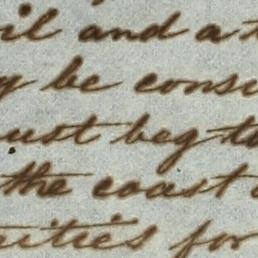 il and a
be consi
ust beg to
the coast
uities for